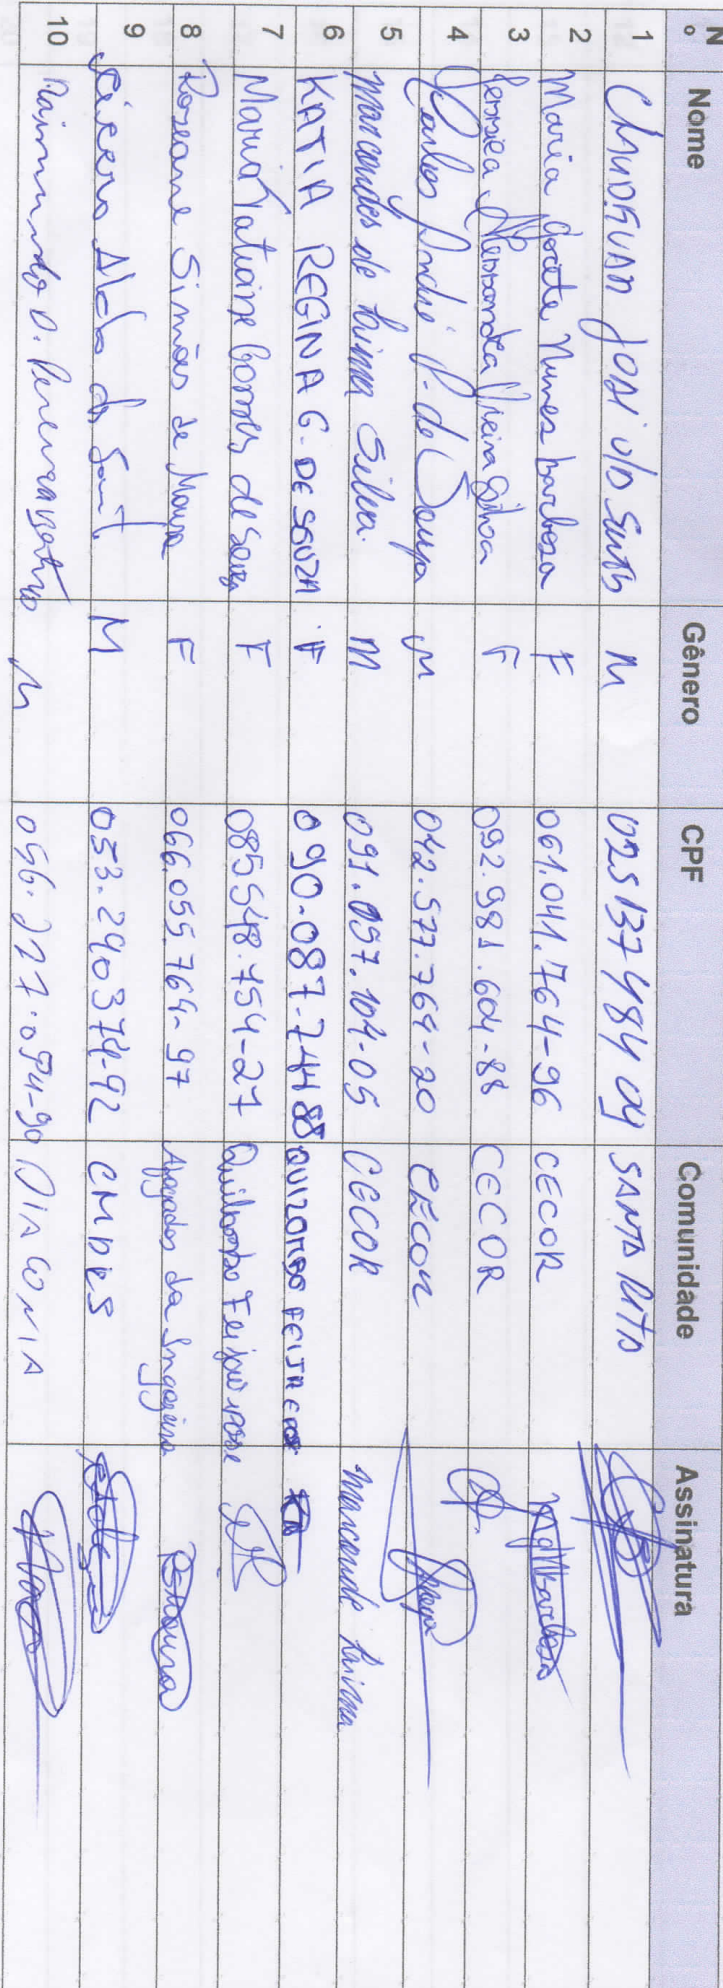 Nº Nome Gênero CPF Comunidade Assinatura
1 José dos Santos M 025 137 484 04 SANTA RITA
2 Maria Gorete Nunes barbosa F 061.041.764-96 CECOR
3 Alessandra Vieira Silva F 092.981.604-88 CECOR
4 Carlos André P. de Souza M 042.577.764-20 CECOR
5 Marcondes de Lima Silva. M 091.057.104-05 CECOR Marconde Lima
6 KATIA REGINA G. DE SOUZA F 090-087-744 88
7 Maria Tatiane Gomes de Souza F 085548.754-27 Quilombo Feijão e posse
8 Roseane Simões de Moura F 066.055.764-97 da Ingazeira
9 Cícero Aldo do M 053.290374-92 CMDRS
10 Raimundo D. M 056.227.054-90 DIACONIA